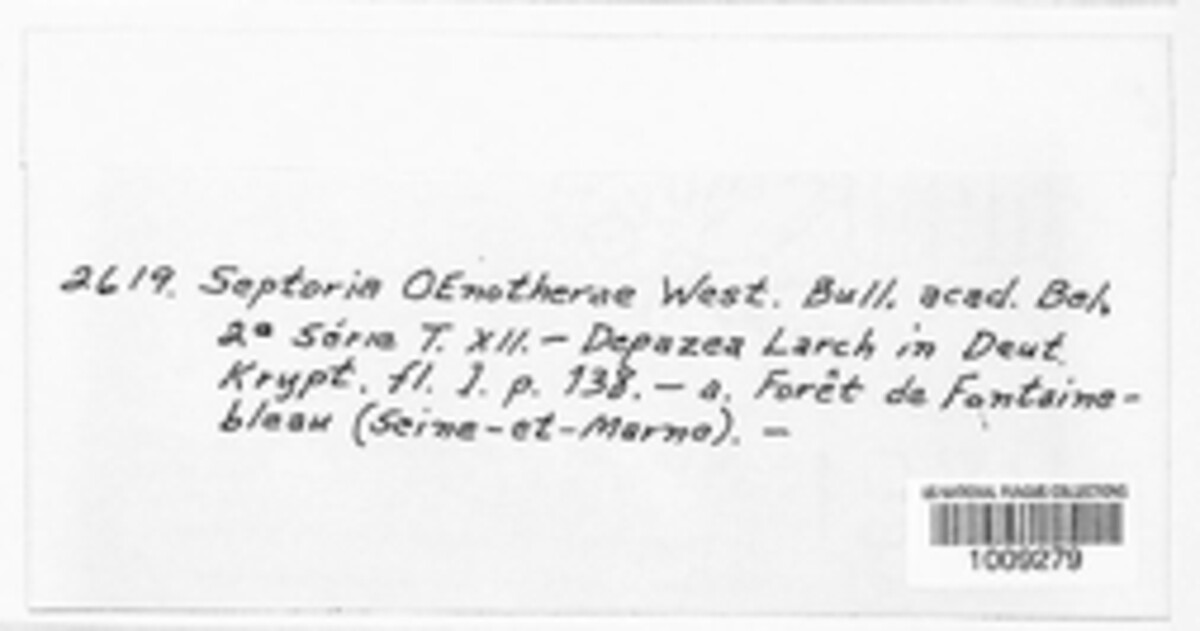 2619. Septoria OEnotherae West. Bull. acad. Bel.
2ª Série T. XII. — Depazea Larch in Deut.
Krypt. fl. I. p. 138. — a. Forêt de Fontaine-
bleau (Seine-et-Marne). —
US NATIONAL FUNGUS COLLECTIONS
1009279